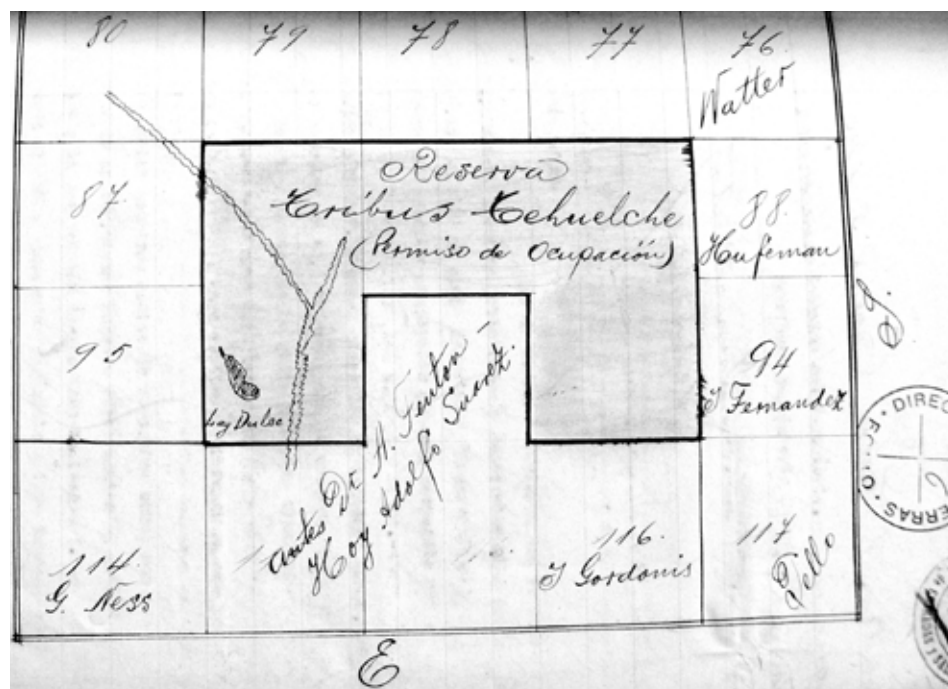 80 79 78 77 76
Watter
Reserva
Tribus Tehuelche
(Permiso de Ocupación)
87
88
Hufeman
95
94
J Fernandez
Lag Dulce
antes Dr. A. Fenton
Hoy Adolfo Suarez.
S.
114
G. Ness
116.
J Gordonis
117
Tello
E
DIREC
TIERRAS